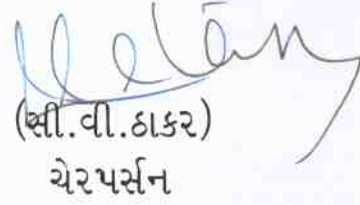 (સી.વી.ઠાકર)
ચેરપર્સન